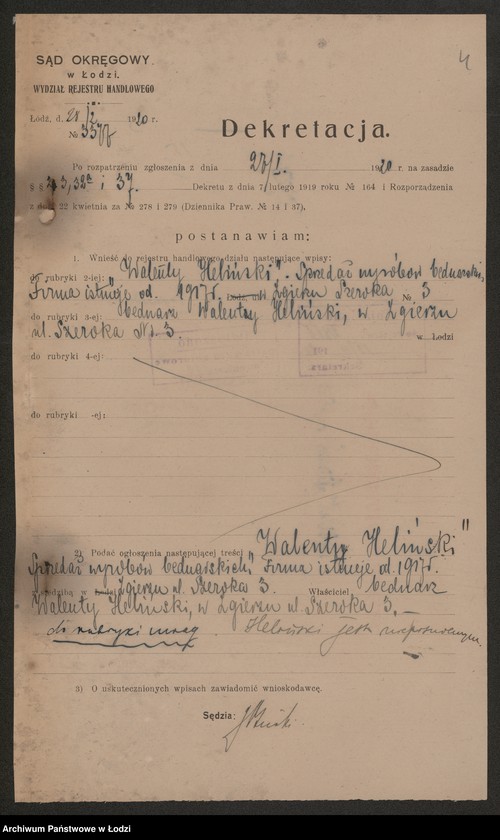 4
SĄD OKRĘGOWY
w Łodzi.
WYDZIAŁ REJESTRU HANDLOWEGO
Łódź, d. 28/I 1920 r.
№ 3377
Dekretacja.
Po rozpatrzeniu zgłoszenia z dnia 27/I. 1920 r. na zasadzie
§ § 3, 32a i 37. Dekretu z dnia 7 lutego 1919 roku № 164 i Rozporządzenia
z dnia 22 kwietnia za № 278 i 279 (Dziennika Praw. № 14 i 37),
postanawiam:
1. Wnieść do rejestru handlowego działu następujące wpisy:
do rubryki 2-iej: "Walenty Heliński". Sprzedaż wyrobów bednarskich,
Firma istnieje od 1917 r. Łódź, Zgierzu Szeroka № 3
do rubryki 3-ej: bednarz Walenty Heliński, w Zgierzu
ul. Szeroka No. 3. w Łodzi
do rubryki 4-ej:
do rubryki -ej:
2) Podać ogłoszenia następującej treści „Walenty Heliński"
Sprzedaż wyrobów bednarskich, Firma istnieje od 1917 r.
z siedzibą w Zgierzu ul. Szeroka 3. Właściciel bednarz
Walenty Heliński, w Zgierzu ul. Szeroka 3. —
do rubryki Heliński jest
3) O uskutecznionych wpisach zawiadomić wnioskodawcę.
Sędzia:
Archiwum Państwowe w Łodzi